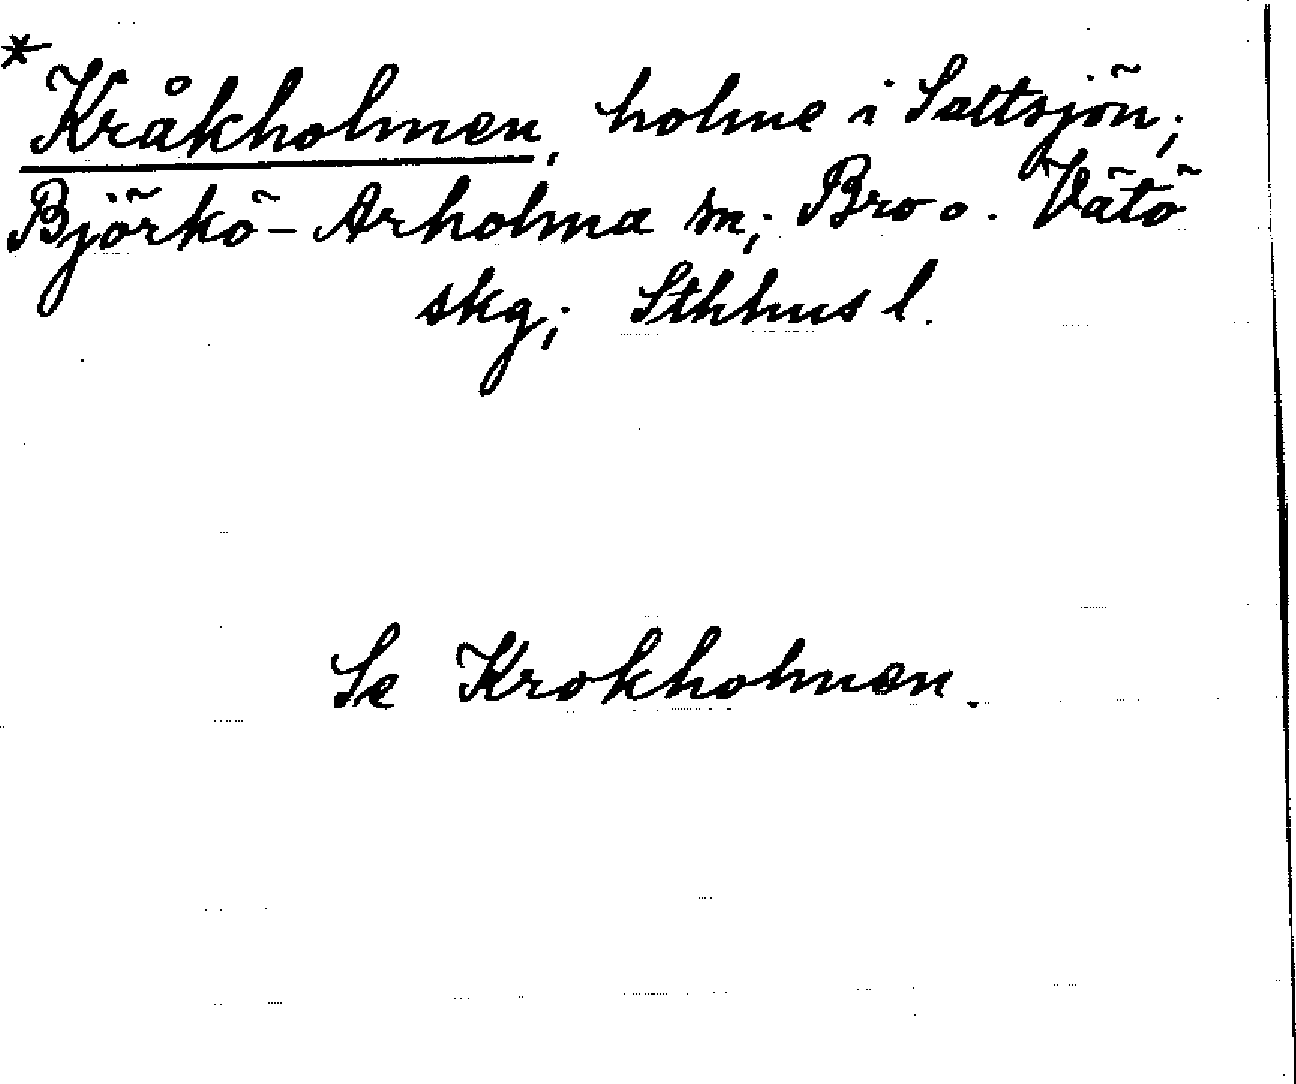 * Kråkholmen, holme i Saltsjön;
Björkö-Arholma sn; Bro o. Vätö
skg; Sthlms l.
Se Krokholmen.